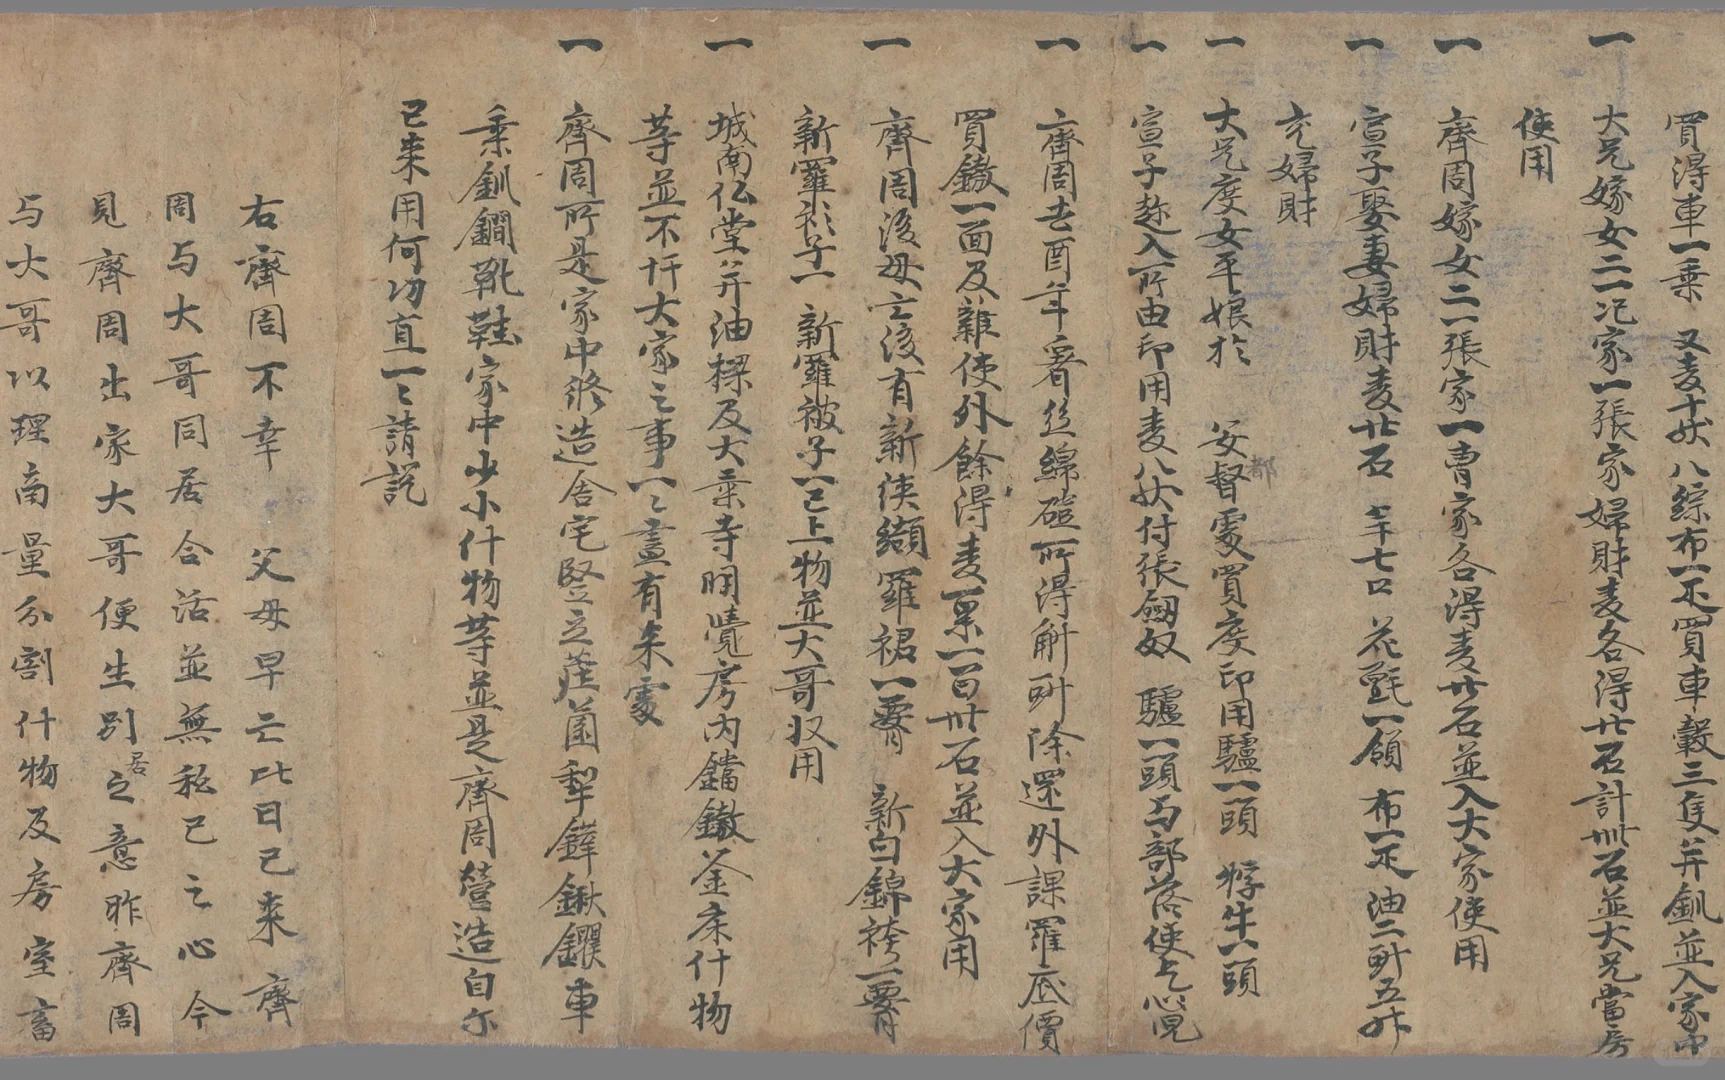 買得車一乗 又麦十䭾八綜布一疋買車轂三隻并釧並入家中
一 大兄嫁女二氾家一張家婦財麦各得廿石計卌石並大兄當房
使用
一 齊周嫁女二一張家一曹家各得麦廿石並入大家使用
一 宣子娶妻婦財麦廿石 羊七口 花氈一領 布一疋 油二㪷五升
充婦財
一 大兄度女平娘於 安都督處買度印用驢一頭 牸牛一頭
一 宣子趂入所由印用麦八䭾付張剱奴 驢一頭与部落使乞心兒
一 齊周去酉年看丝綿磑所得斛㪷除還外課羅底價
買鏊一面及雜使外餘得麦一百卅石並入大家用
一 齊周後母亡後有新侠纈羅裙一要 新白錦袴一要
新羅衫子一 新羅被子一已上物並大哥收用
一 城南仏堂并油樑及大乗寺明覺房內鐺鏊釜床什物
等並不忓大家之事一〻盡有来處
一 齊周所是家中修造舍宅竪立庄園犁鏵鍬钁車
乗釧鐗靴鞋家中少小什物等並是齊周營造自尓
已来用何功直一〻請説
右齊周不幸 父母早亡比日已来 齊
周与大哥同居合活並無私己之心 今
見齊周出家大哥便生別居之意昨齊周
与大哥以理商量分割什物及房室畜